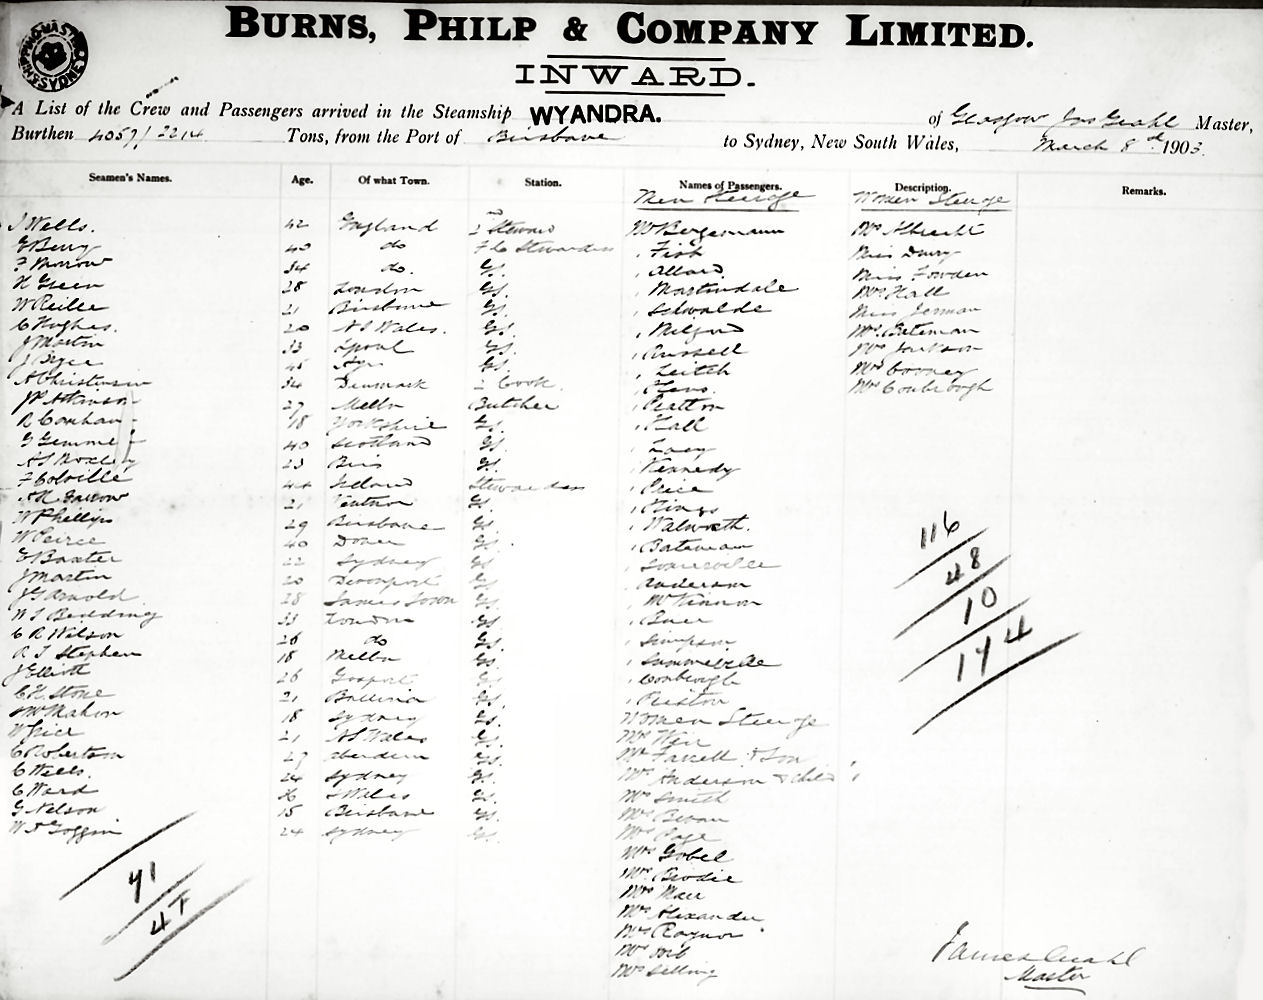 BURNS, PHILP & COMPANY LIMITED.
INWARD.
A List of the Crew and Passengers arrived in the Steamship WYANDRA. of Glasgow Jas Master,
Burthen 4057/2214 Tons, from the Port of Brisbane to Sydney, New South Wales, March 8th 1903.
Seamen's Names. Age. Of what Town. Station. Names of Passengers. Description. Remarks.
Men Steerage Women Steerage
J Wells. 42 England Steward Mr Bergemann Mrs Albrecht
E Berry 40 do Stewardess " Fish Miss Drury
F Morrow 34 do. Gs. " Allard Miss Fowden
H Green 28 London Gs. " Martindale Mrs Hall
W Reillee 21 Brisbane Gs. " Miss Jerman
C Hughes. 20 N S Wales. Gs. " Milford Mrs Bateman
J Martin 33 Lpool Gs. " Russell Mrs Jackson
J Bryce 45 Ayr Gs. " Leitch Mrs Cooney
A Christensen 34 Denmark 2 Cook. " Mrs Conbrough
Atkinson 27 Melbn Butcher " Pratten
R Conham 18 Yorkshire Gs. " Hall
G Gemmell 40 Scotland Gs. " Lacy
A S Boxley 23 Bris Gs. " Kennedy
F Colville 44 Ireland Stewardess " Price
A H Farrow 21 Ventnor Gs. " Kings
W Phillips 29 Brisbane Gs. " Walworth.
W Peirce 40 Dover Gs. " Bateman
E Baxter 22 Sydney Gs. " Somerville
J Martin 20 Devonport Gs. " Anderson
J G Arnold 28 James Town Gs. " McKinnon
W S Bedding 33 London Gs. "
C R Wilson 26 do Gs. " Simpson
R J Stephen 18 Melbn Gs. " Summerville
J Elliott 26 Gosport Gs. " Conbrough
C H Stone 21 Ballina Gs. " Preston
McMahon 18 Sydney Gs. Women Steerage
W Grier 21 N S Wales Gs. Mrs Weir
C Robertson 27 Aberdeen Gs. Mrs Farrell & Son
C Wells. 24 Sydney Gs. Mrs Anderson & child
C Ward 36 S Wales Gs. Mrs Smith
G Nelson 18 Brisbane Gs. Mrs Bevan
W Goggin 24 Sydney Gs. Mrs Page
Mrs Gobel
Mrs Brodie
Mrs Marr
Mrs Alexander
Mrs Raynor
Mrs
Mrs Selling
116
48
10
174
James
Master